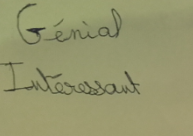 Génial
Intéressant